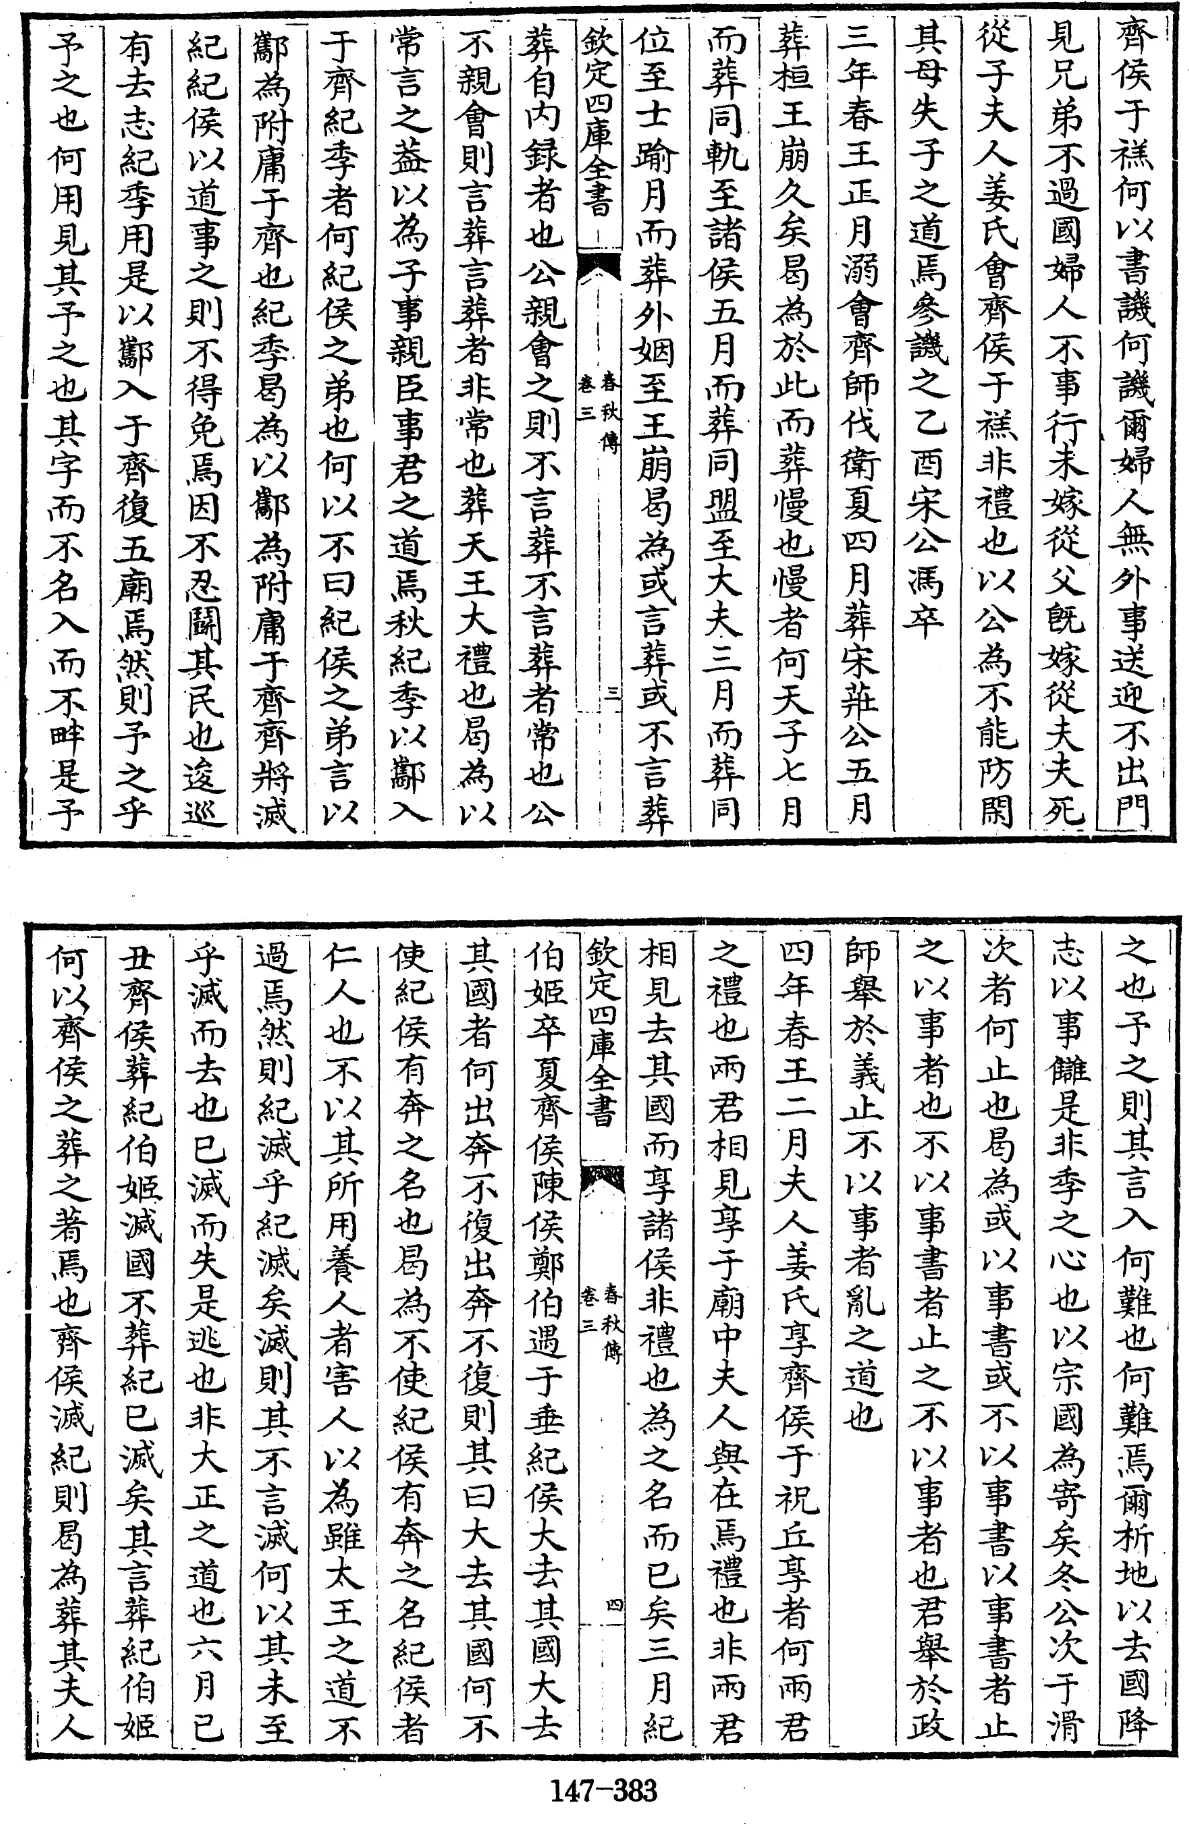 齊侯于禚何以書譏何譏爾婦人無外事送迎不出門
見兄弟不過國婦人不事行未嫁從父旣嫁從夫夫死
從子夫人姜氏會齊侯于禚非禮也以公為不能防閑
其母失子之道焉參譏之乙酉宋公馮卒
三年春王正月溺會齊師伐衛夏四月葬宋莊公五月
葬桓王崩久矣曷為於此而葬慢也慢者何天子七月
而葬同軌至諸侯五月而葬同盟至大夫三月而葬同
位至士踰月而葬外姻至王崩曷為或言葬或不言葬
欽定四庫全書
春秋傳
卷三
三
葬自内録者也公親會之則不言葬不言葬者常也公
不親會則言葬言葬者非常也葬天王大禮也曷為以
常言之葢以為子事親臣事君之道焉秋紀季以酅入
于齊紀季者何紀侯之弟也何以不曰紀侯之弟言以
酅為附庸于齊也紀季曷為以酅為附庸于齊齊將滅
紀紀侯以道事之則不得免焉因不忍鬭其民也逡巡
有去志紀季用是以酅入于齊復五廟焉然則予之乎
予之也何用見其予之也其字而不名入而不畔是予
之也予之則其言入何難也何難焉爾析地以去國降
志以事讎是非季之心也以宗國為寄矣冬公次于滑
次者何止也曷為或以事書或不以事書以事書者止
之以事者也不以事書者止之不以事者也君舉於政
師舉於義止不以事者亂之道也
四年春王二月夫人姜氏享齊侯于祝丘享者何兩君
之禮也兩君相見享于廟中夫人與在焉禮也非兩君
相見去其國而享諸侯非禮也為之名而已矣三月紀
欽定四庫全書
春秋傳
卷三
四
伯姬卒夏齊侯陳侯鄭伯遇于垂紀侯大去其國大去
其國者何出奔不復出奔不復則其曰大去其國何不
使紀侯有奔之名也曷為不使紀侯有奔之名紀侯者
仁人也不以其所用養人者害人以為雖太王之道不
過焉然則紀滅乎紀滅矣滅則其不言滅何以其未至
乎滅而去也已滅而失是逃也非大正之道也六月已
丑齊侯葬紀伯姬滅國不葬紀已滅矣其言葬紀伯姬
何以齊侯之葬之著焉也齊侯滅紀則曷為葬其夫人
147-383